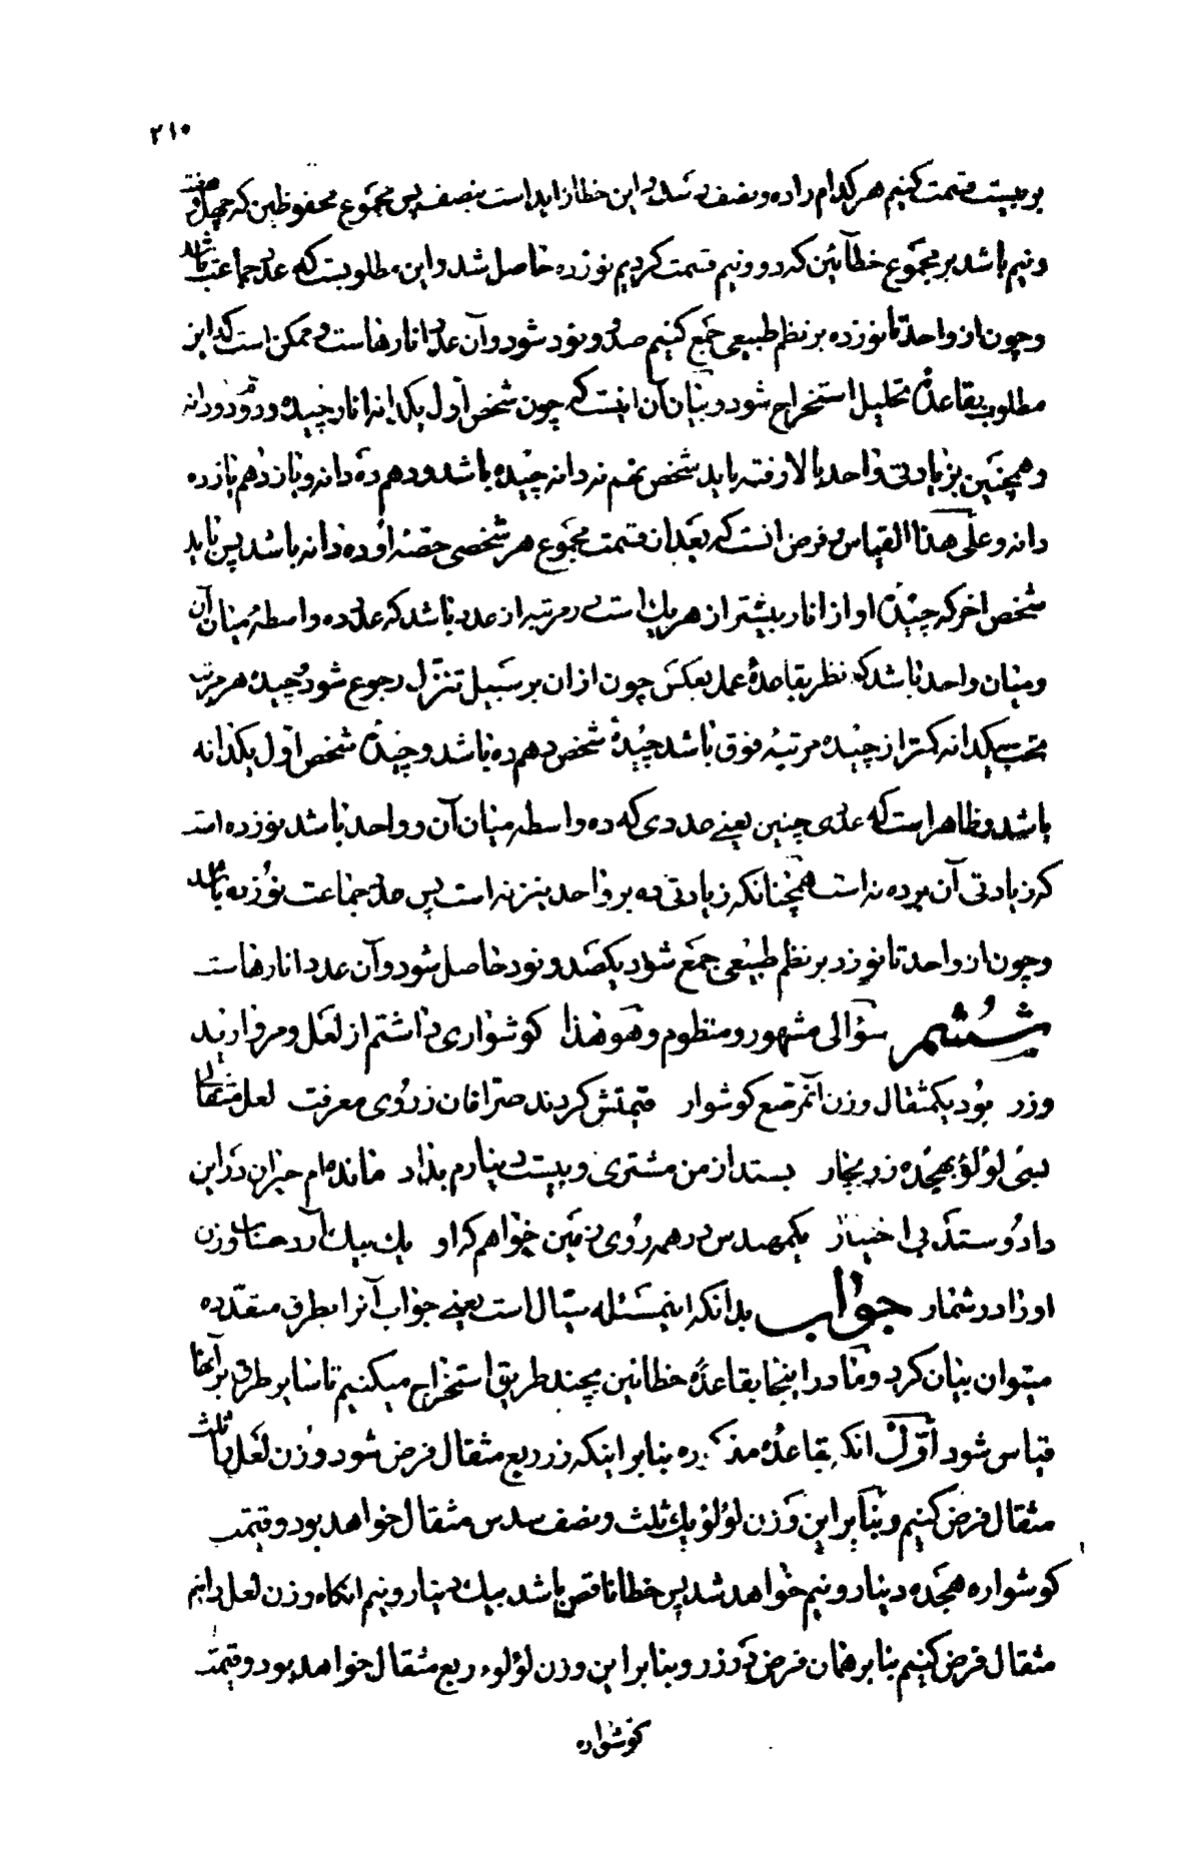 ۲۱۰
بر بیست قسمت کنیم هر کدام را ده و نصف رسد پس این خطا زاید است بنصف پس مجموع محفوظین که چهل و هفت
و نیم باشد بر مجموع خطائین که دو و نیم قسمت کردیم نوزده حاصل شد و این مطلوبست که عدد جماعت باشد
و چون از واحد تا نوزده بر نظم طبیعی جمع کنیم صد و نود شود و آن عدد انارهاست و ممکن است که این
مطلوب بقاعدهٔ تحلیل استخراج شود و بیان آن اینست که چون شخص اول یکدانه انار چیده و دوم دو دانه
و همچنین بزیادتی واحد بالا رفته باید شخص نهم نه دانه چیده باشد و دهم ده دانه و یازدهم یازده
دانه و علی هذا القیاس و فرض آنست که بعد از قسمت مجموع هر شخصی حصهٔ او ده دانه باشد پس باید
شخص اخر که چیدهٔ او از انار بیشتر از هر یک است در مرتبه از عدد باشد که عدد ده واسطهٔ میان آن
و میان واحد باشد که نظر بقاعدهٔ عمل بعکس چون از ان بر سبیل تنزل رجوع شود چیدهٔ هر مرتبه
تحت یکدانه کمتر از چیدهٔ مرتبهٔ فوق باشد چیدهٔ شخص دهم ده باشد و چیدهٔ شخص اول یکدانه
باشد و ظاهر است که عددی چنین یعنی عددی که ده واسطه میان آن و واحد باشد نوزده است
که زیادتی آن بر ده نه است همچنانکه زیادتی ده بر واحد نیز نه است پس عدد جماعت نوزده باشد
و چون از واحد تا نوزده بر نظم طبیعی جمع شود یکصد و نود حاصل شود و آن عدد انارهاست
ششم سؤالی مشهور و منظوم و هو هذا کوشواری داشتم از لعل و مروارید
و زر بود یکمثقال وزن آن مرصع کوشوار قیمتش کردند صرافان ز روی معرفت لعل مثقالی
بسی لؤلؤ بهجده زر بچار بستد از من مشتری و بیست دینارم بداد مانده ام حیران در این
داد و ستد بی اختیار یکمهندس در همه روی زمین خواهم که او یک بیک آرد حساب وزن
او را در شمار جواب بدانکه اینمسئله سیال است یعنی جواب آنرا بطرق متعدده
میتوان بیان کرد و ما در اینجا بقاعدهٔ خطائین بچند طریق استخراج میکنیم تا سایر طرق بر آنها
قیاس شود اول انکه بقاعدهٔ مذکوره بنابر اینکه زر ربع مثقال فرض شود وزن لعل را ثلث
مثقال فرض کنیم و بنابر این وزن لؤلؤ یک ثلث و نصف سدس مثقال خواهد بود و قیمت
کوشواره هجده دینار و نیم خواهد شد پس خطا ناقص باشد بیک دینار و نیم انکاه وزن لعل را نیم
مثقال فرض کنیم بنابر همان فرض در زر و بنابر این وزن لؤلوء ربع مثقال خواهد بود و قیمت
کوشواره